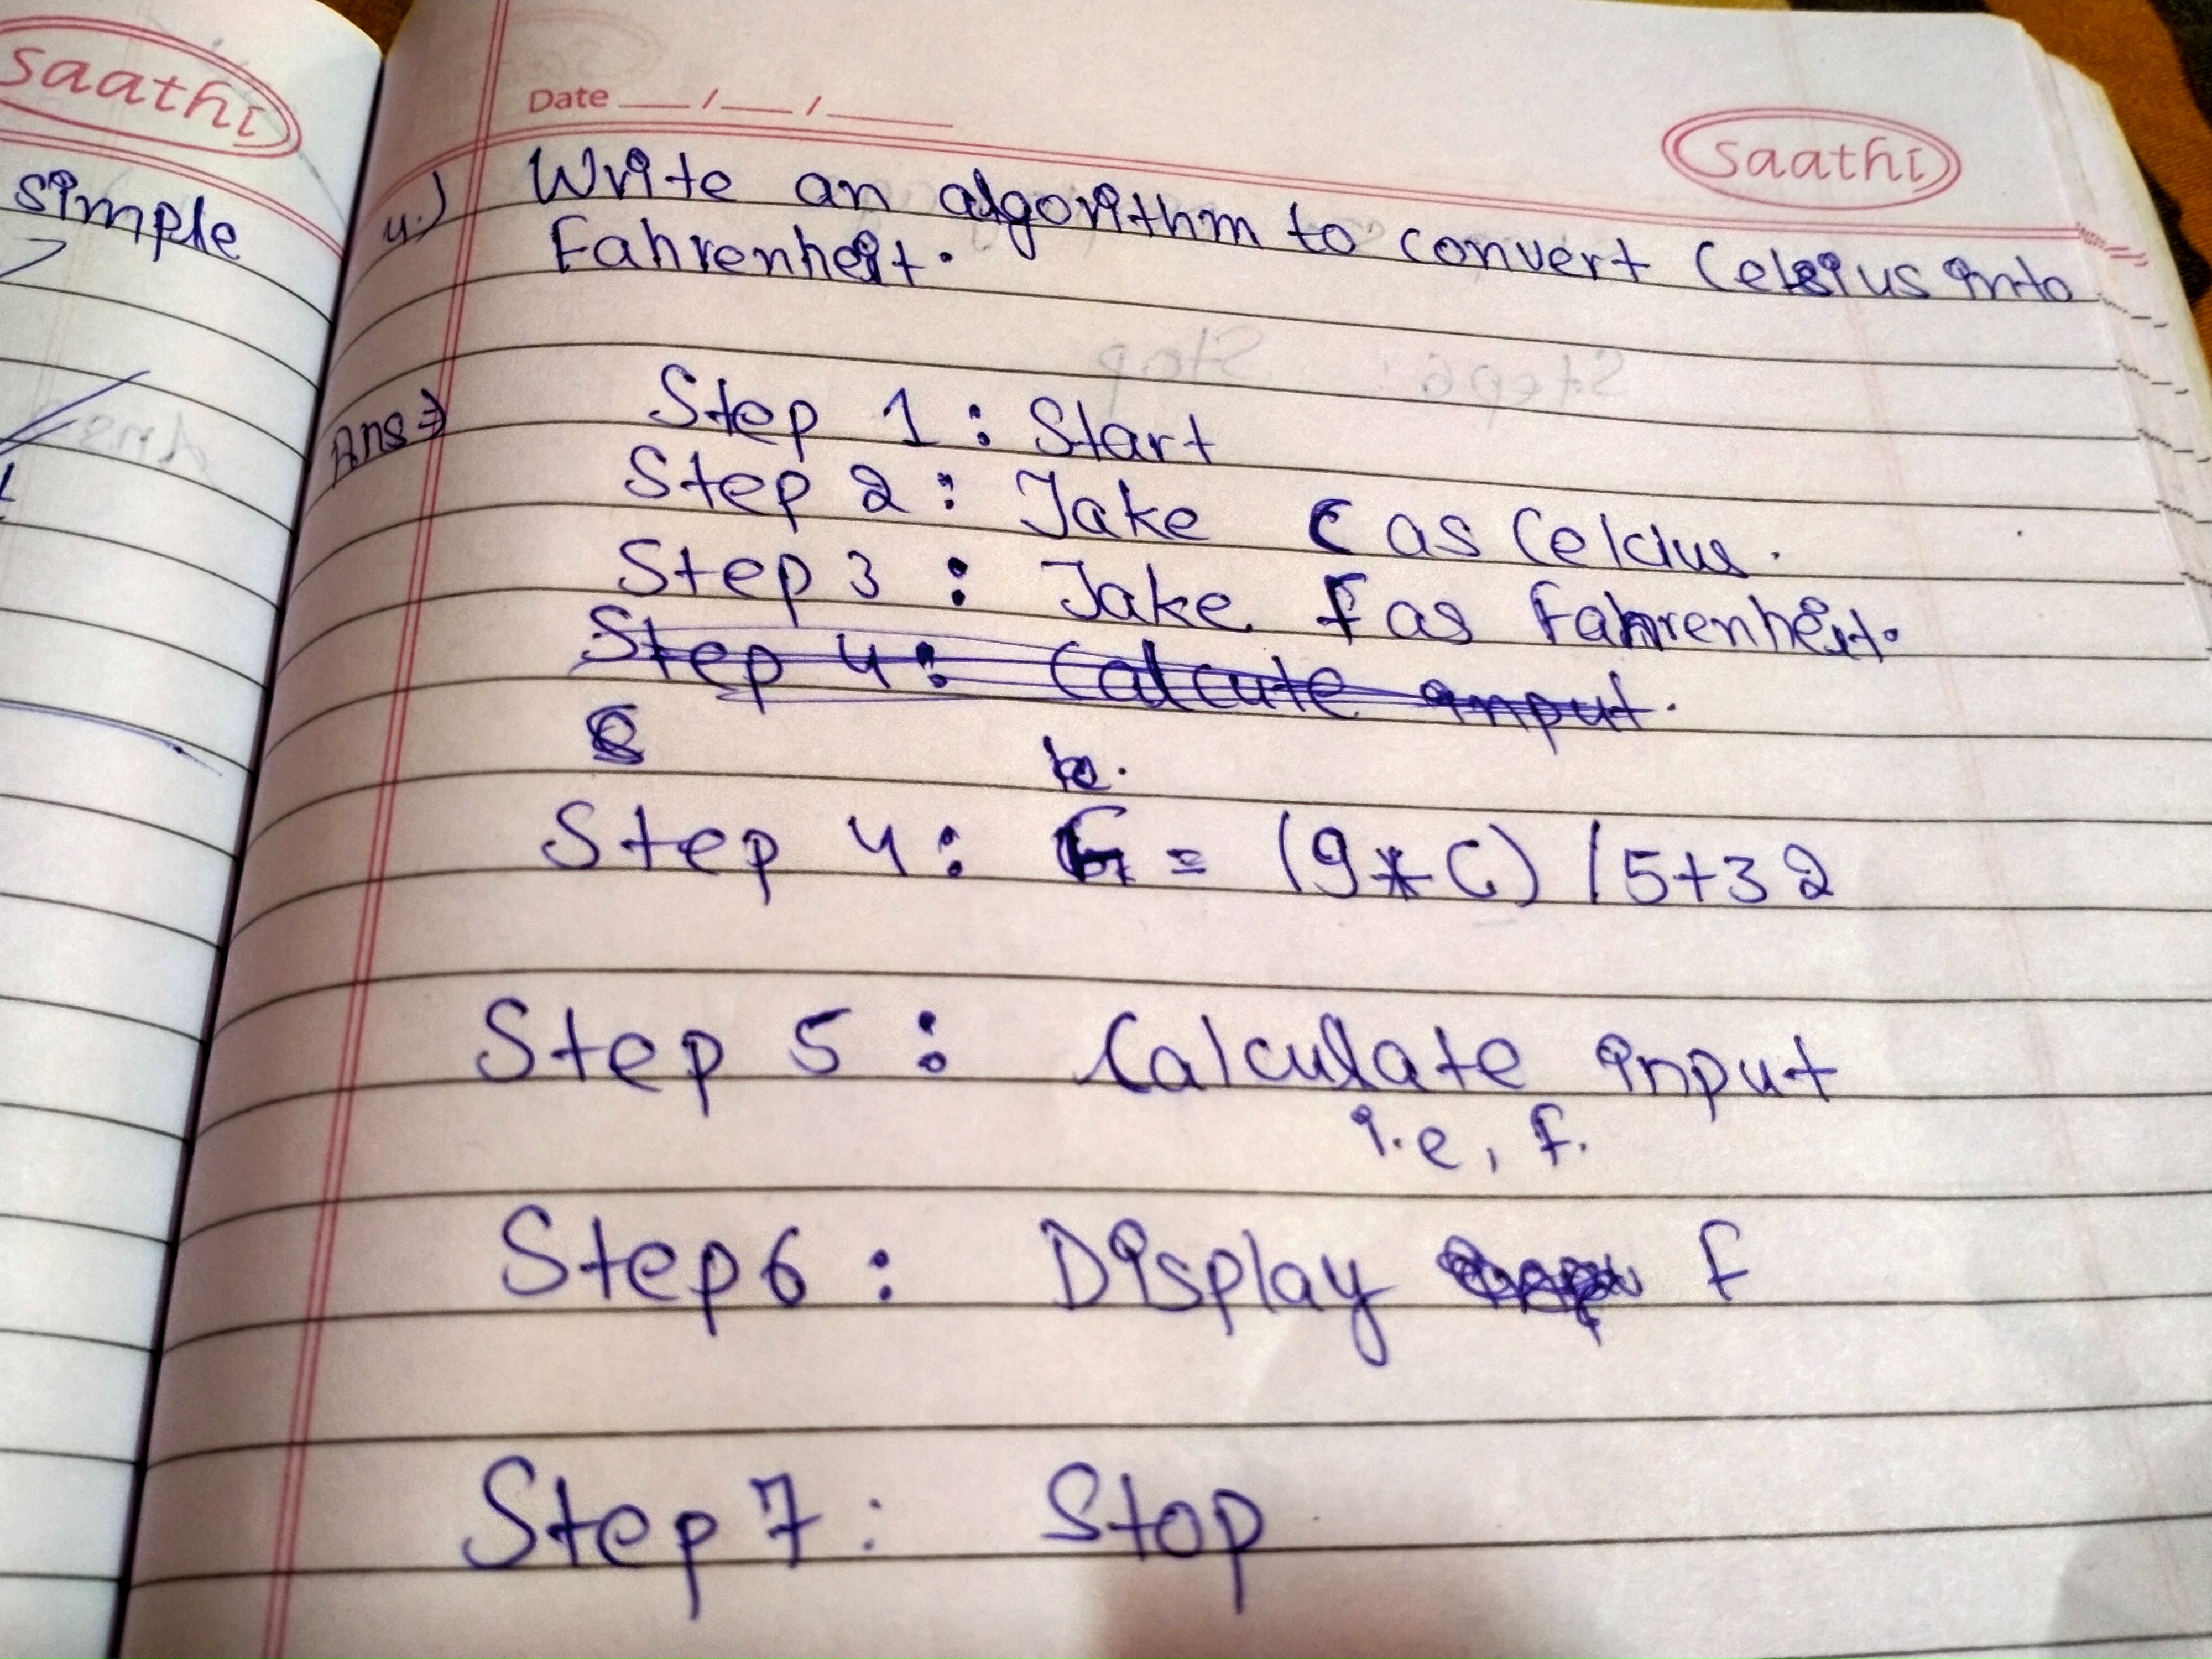 saathi
simple
Date __/__/____
saathi
4.) Write an algorithm to convert Celsius into
Fahrenheit.
Ans⇒ Step 1 : Start
Step 2 : Take C as Celcius.
Step 3 : Take F as Fahrenheit.
Step 4 : Calcute input.
Step 4 : = (9*C) / 5+32
Step 5 : Calculate input
i.e, f.
Step 6 : Display f
Step 7 : Stop